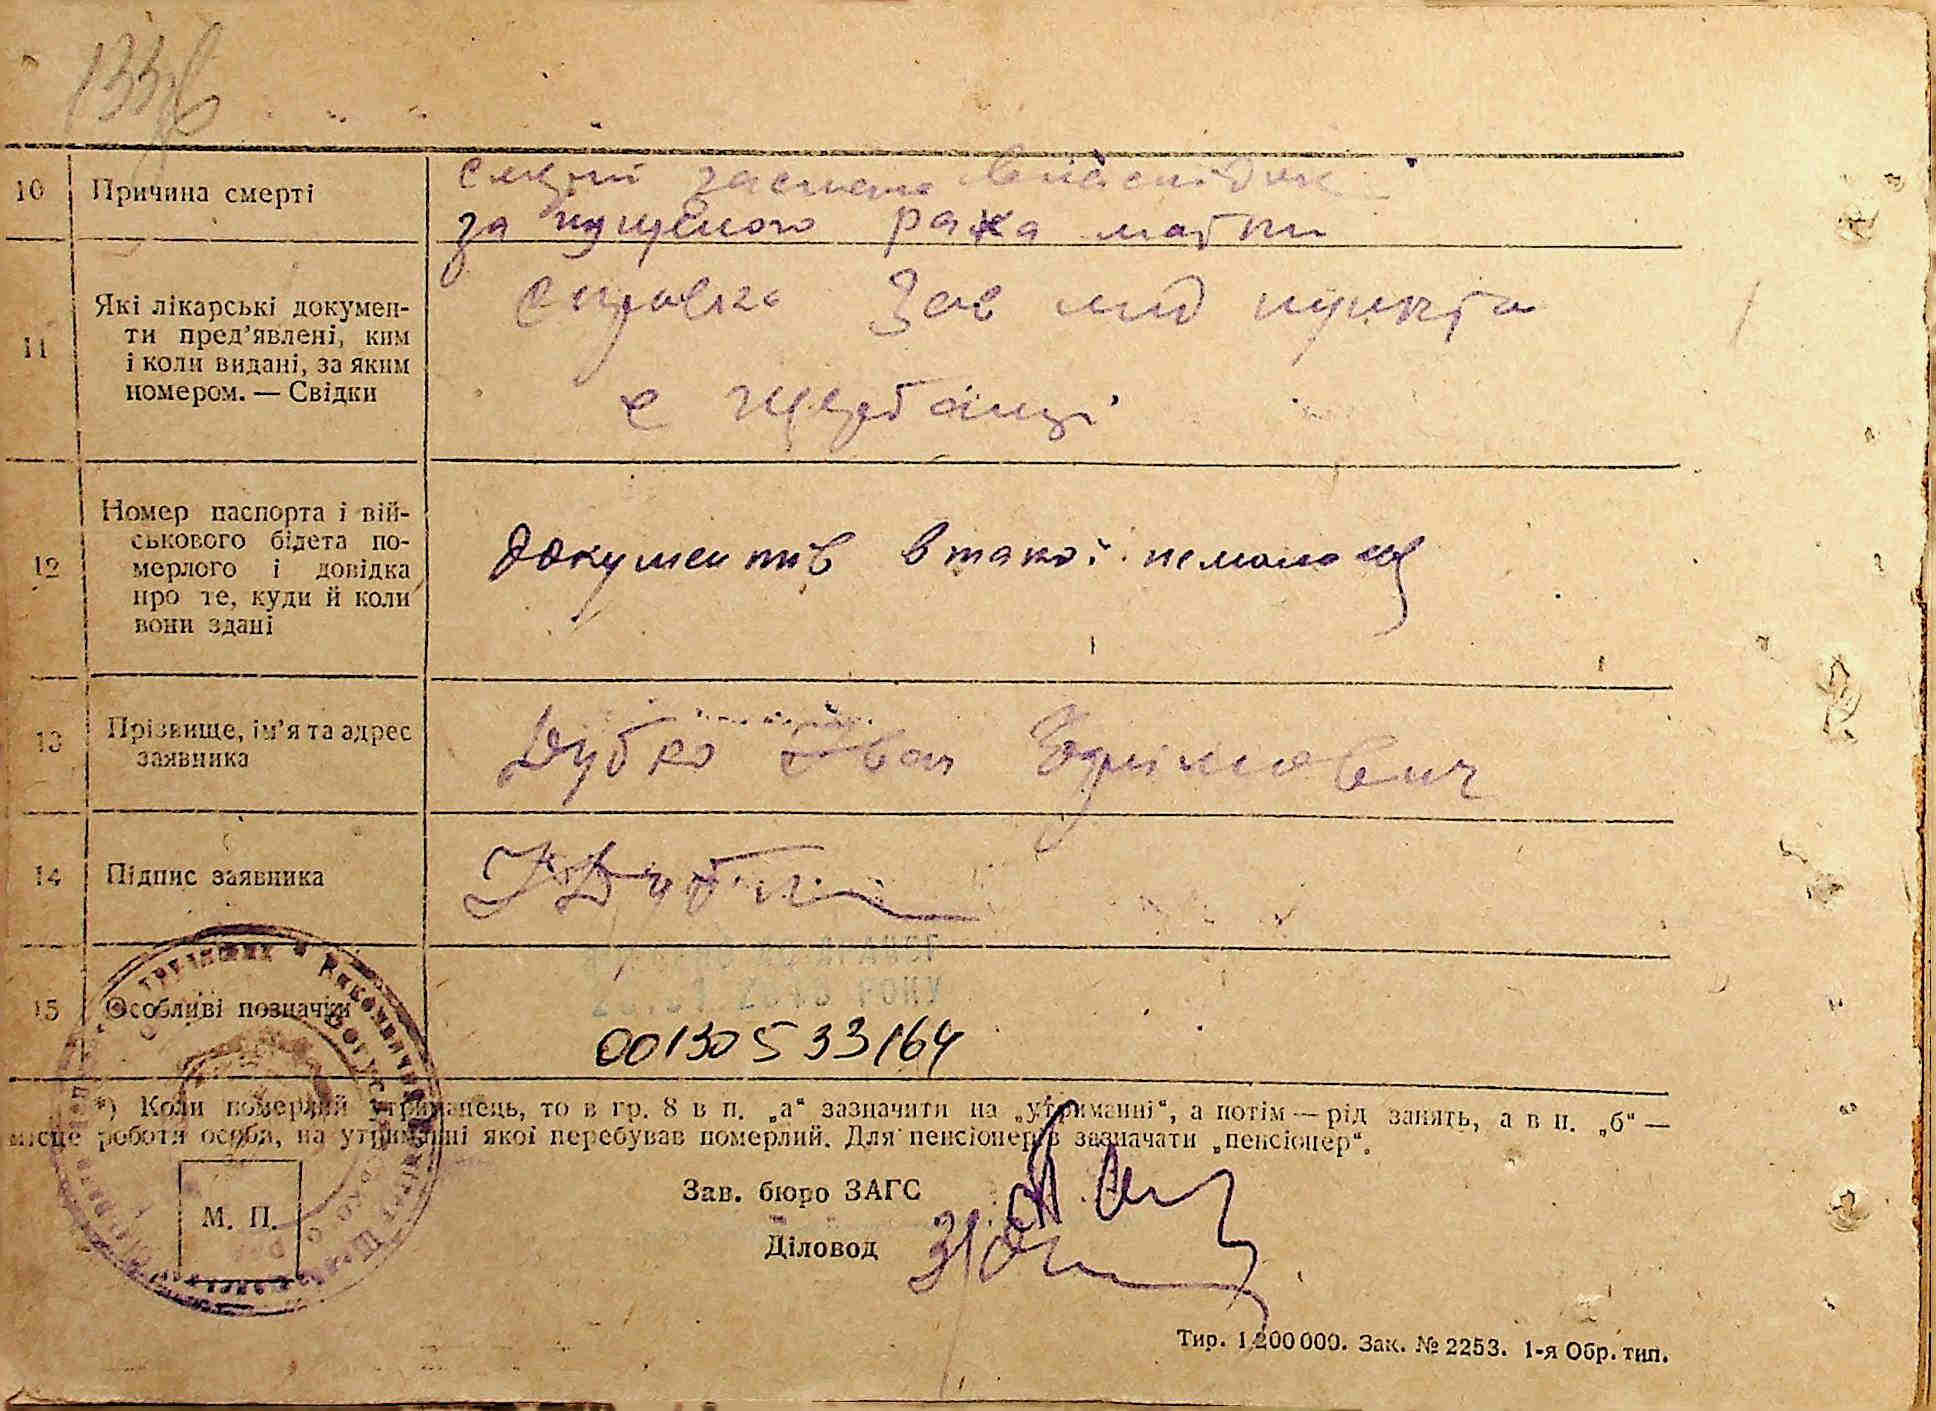 133
10 Причина смерті
смерть настала внаслідок
запущеного рака матки
11 Які лікарські докумен-
ти пред’явлені, ким
і коли видані, за яким
номером. — Свідки
справка Зав мед пункта
с Щербанці
12 Номер паспорта і вій-
ськового білета по-
мерлого і довідка
про те, куди й коли
вони здані
документів в такої немаєця
13 Прізвище, ім’я та адрес
заявника
Дубко Іван Єфімович
14 Підпис заявника
ІДубко
15 Особливі позначки
РОКУ
00130533164
*) Коли померлий утриманець, то в гр. 8 в п. „а“ зазначити на „утриманні“, а потім — рід занять, а в п. „б“ —
місце роботи особи, на утриманні якої перебував померлий. Для пенсіонерів зазначати „пенсіонер“.
Зав. бюро ЗАГС
М. П.
Діловод
Тир. 1 200 000. Зак. № 2253. 1-я Обр. тип.